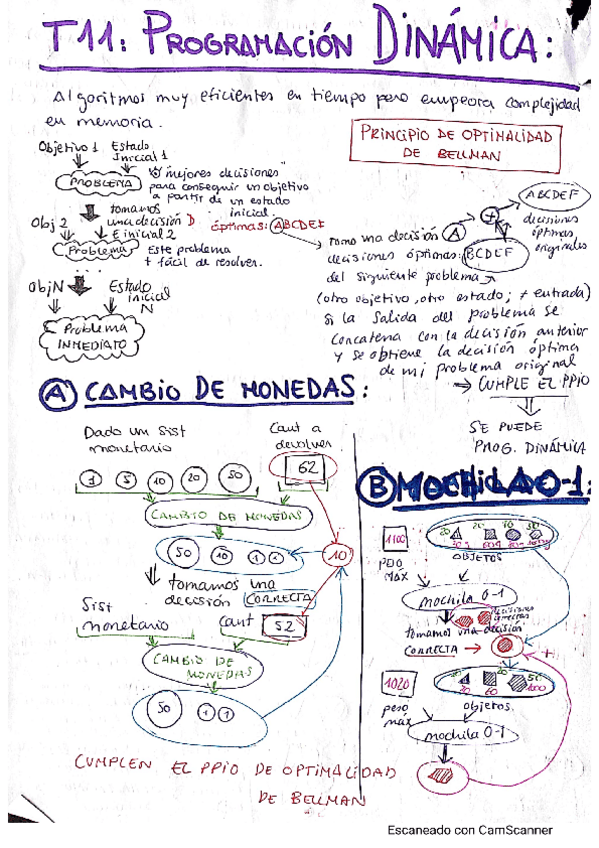 T11: PROGRAMACIÓN DINÁMICA:
Algoritmos muy eficientes en tiempo pero empeora complejidad
en memoria.
PRINCIPIO DE OPTIMALIDAD
DE BELLMAN
Objetivo 1 Estado
Inicial 1
PROBLEMA
mejores decisiones
para conseguir un objetivo
a partir de un estado
inicial.
tomamos
Obj 2 una decisión D
E inicial 2
óptimas: ABCDEF
Problema
Este problema
+ fácil de resolver.
Obj N Estado
inicial
N
Problema
INMEDIATO
ABCDEF
decisiones
óptimas
originales
Tomo una decisión A +
decisiones óptimas: BCDEF
del siguiente problema
(otro objetivo, otro estado; ≠ entrada)
Si la salida del problema se
concatena con la decisión anterior
y se obtiene la decisión óptima
de mi problema original
→ CUMPLE EL PPIO
SE PUEDE
PROG. DINÁMICA
A CAMBIO DE MONEDAS:
Dado un Sist
monetario
Cant a
devolver
1 5 10 20 50 62
CAMBIO DE MONEDAS
50 10 1 1 10
tomamos una
decisión CORRECTA
Sist
monetario
Cant 52
CAMBIO DE
MONEDAS
50 1 1
B MOCHILA 0-1:
1100
peso
máx
OBJETOS
mochila 0-1
decisiones
correctas
tomamos una decisión
CORRECTA →
+
1020
peso
máx
objetos.
mochila 0-1
CUMPLEN EL PPIO DE OPTIMALIDAD
DE BELLMAN
Escaneado con CamScanner